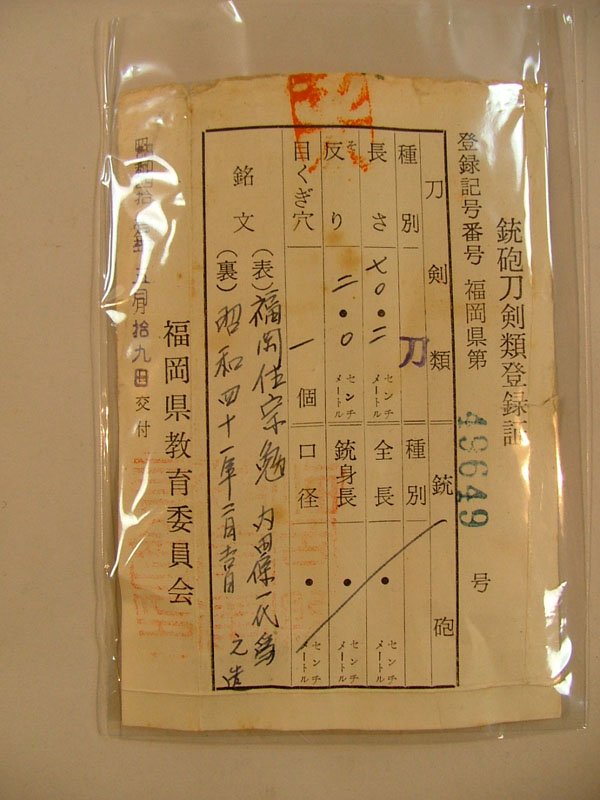 銃砲刀剣類登録証
登録記号番号 福岡県第 49649 号
刀剣類 銃砲
種別 刀 種別
長さ 七〇・二 センチメートル 全長 ・ センチメートル
反り そ 二・〇 センチメートル 銃身長 ・ センチメートル
目くぎ穴 一 個 口径 ・ センチメートル
銘文 (表) 福岡住宗勉 内田保一代為
之造
(裏) 昭和四十一年二月吉日
昭和四拾 年 五月拾九日交付
福岡県教育委員会